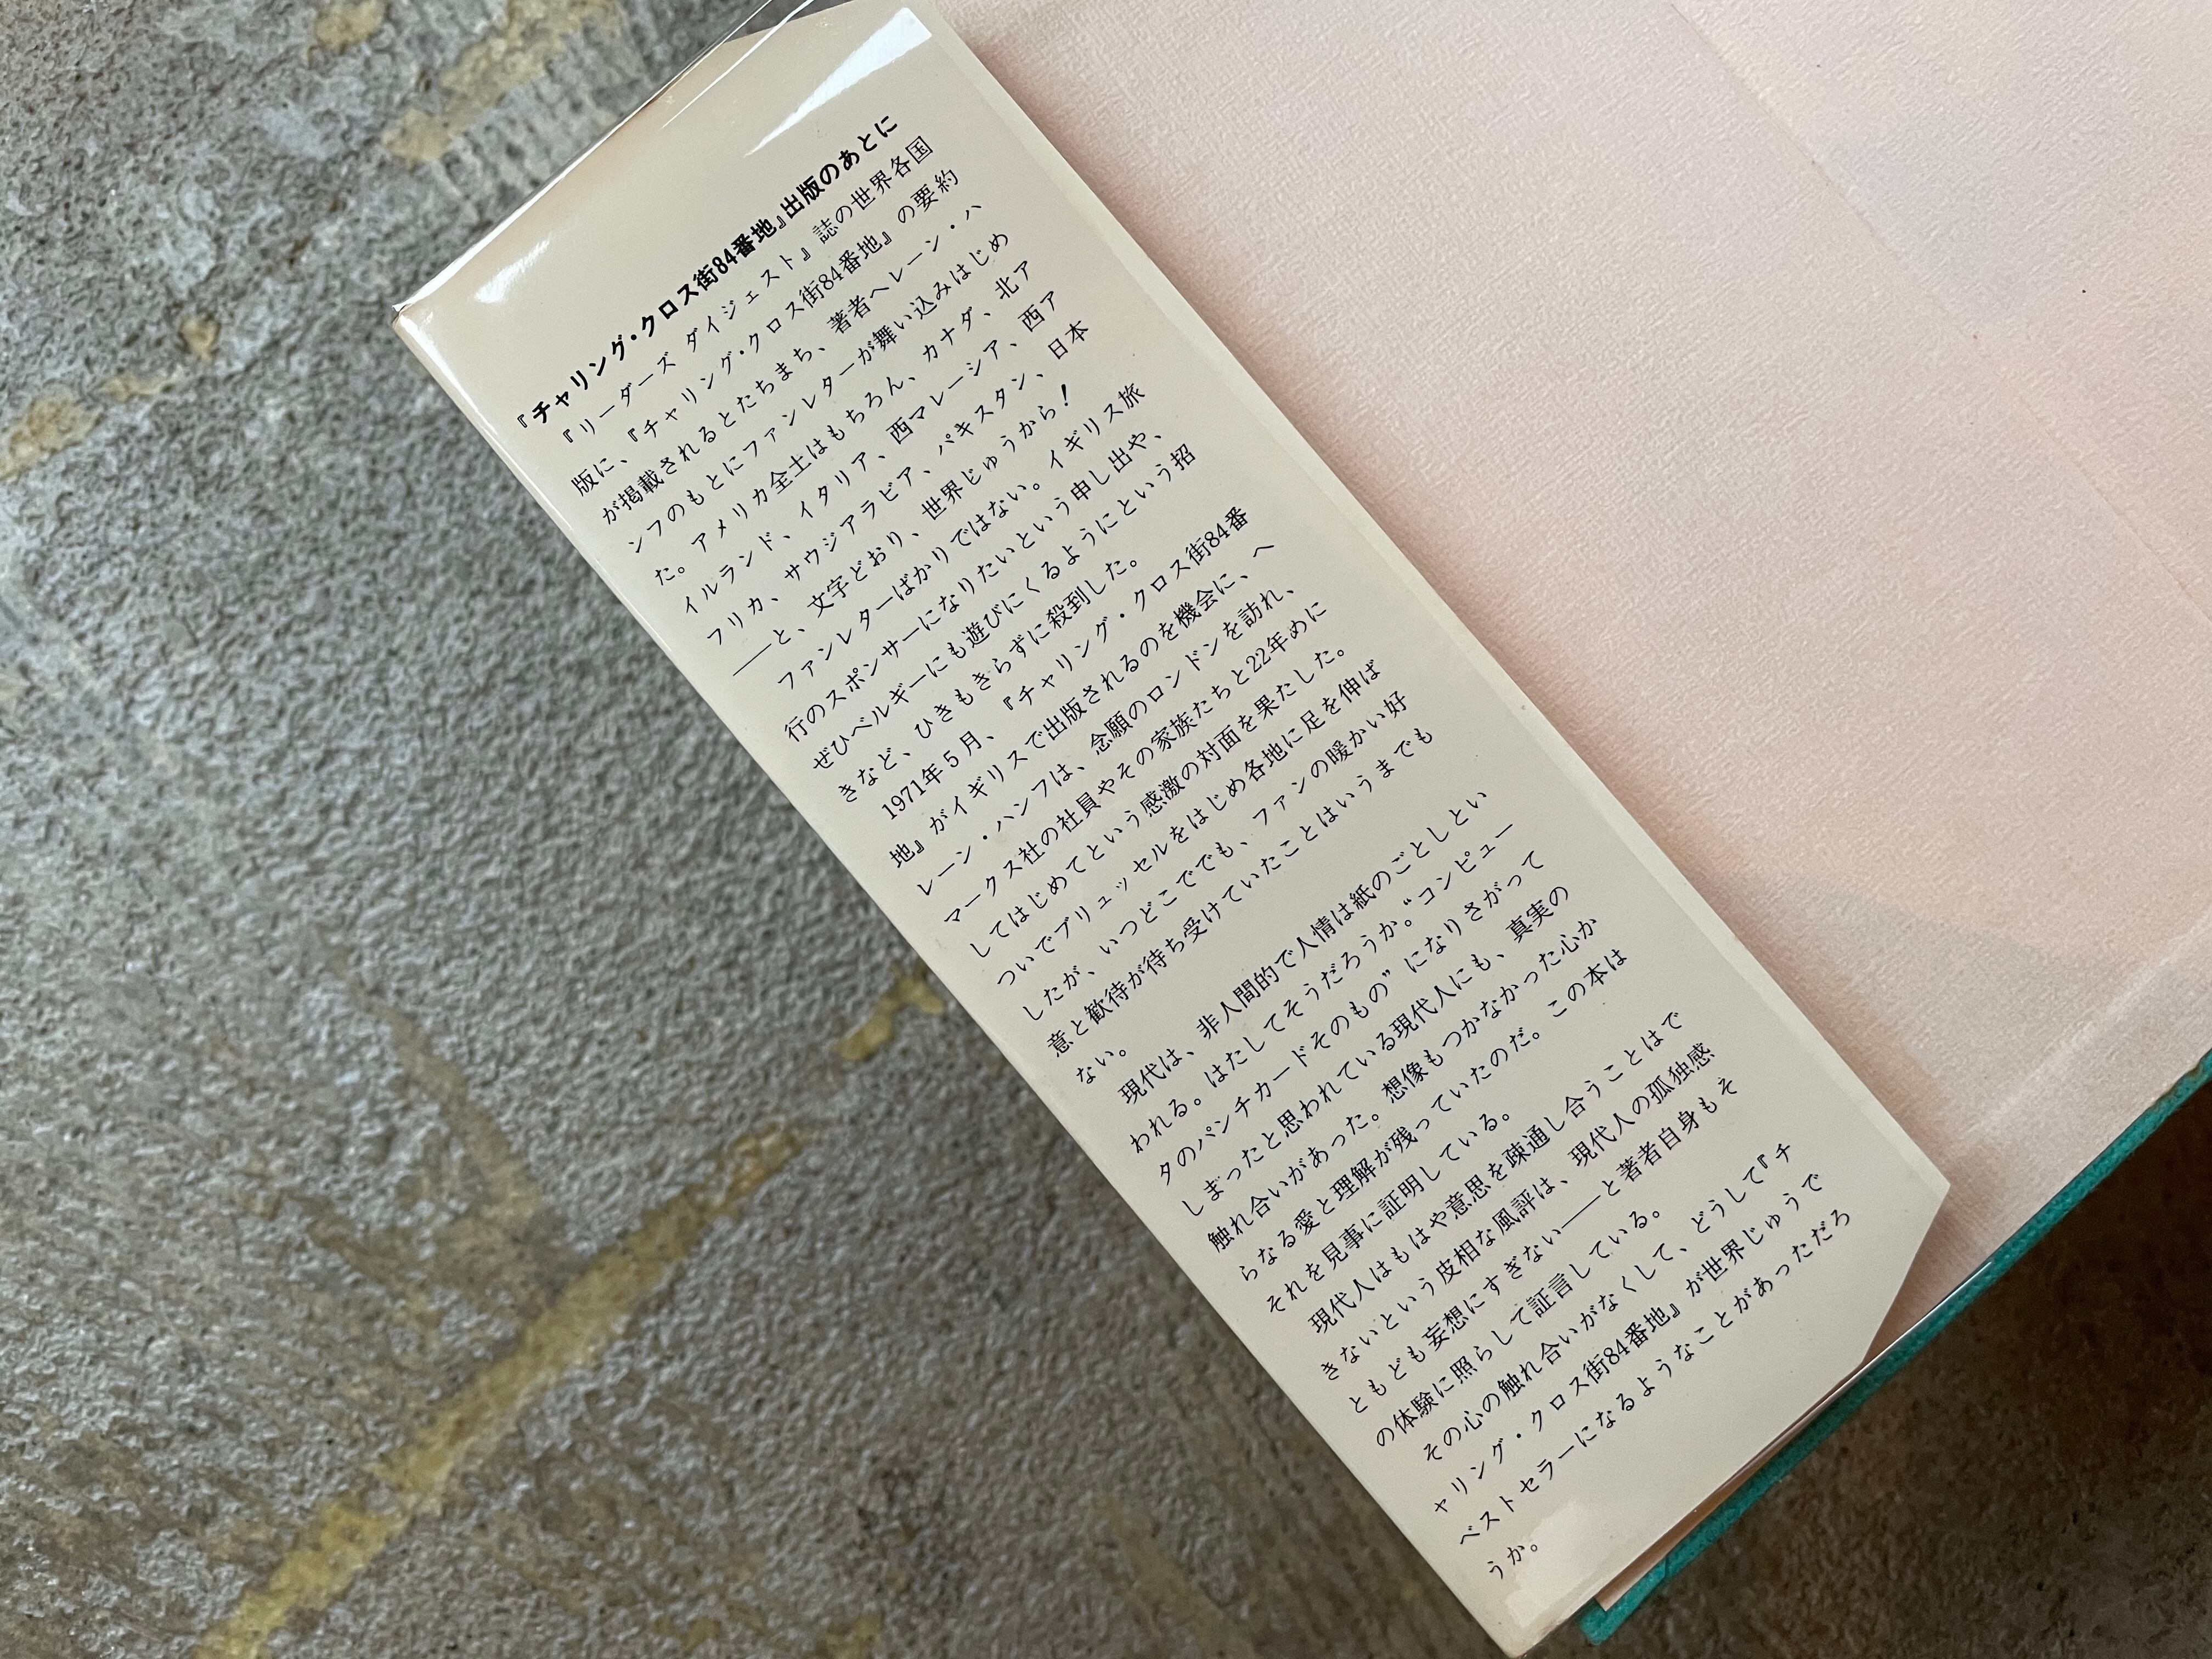 『チャリング・クロス街84番地』出版のあとに
『リーダーズ ダイジェスト』誌の世界各国
版に、『チャリング・クロス街84番地』の要約
が掲載されるとたちまち、著者ヘレーン・ハ
ンフのもとにファンレターが舞い込みはじめ
た。アメリカ全土はもちろん、カナダ、北ア
イルランド、イタリア、西マレーシア、西ア
フリカ、サウジアラビア、パキスタン、日本
――と、文字どおり、世界じゅうから！
ファンレターばかりではない。イギリス旅
行のスポンサーになりたいという申し出や、
ぜひベルギーにも遊びにくるようにという招
きなど、ひきもきらずに殺到した。
1971年5月、『チャリング・クロス街84番
地』がイギリスで出版されるのを機会に、ヘ
レーン・ハンフは、念願のロンドンを訪れ、
マークス社の社員やその家族たちと22年めに
してはじめてという感激の対面を果たした。
ついでブリュッセルをはじめ各地に足を伸ば
したが、いつどこででも、ファンの暖かい好
意と歓待が待ち受けていたことはいうまでも
ない。
現代は、非人間的で人情は紙のごとしとい
われる。はたしてそうだろうか。“コンピュー
タのパンチカードそのもの”になりさがって
しまったと思われている現代人にも、真実の
触れ合いがあった。想像もつかなかった心か
らなる愛と理解が残っていたのだ。この本は
それを見事に証明している。
現代人はもはや意思を疎通し合うことはで
きないという皮相な風評は、現代人の孤独感
ともども妄想にすぎない――と著者自身もそ
の体験に照らして証言している。
その心の触れ合いがなくして、どうして『チ
ャリング・クロス街84番地』が世界じゅうで
ベストセラーになるようなことがあっただろ
うか。